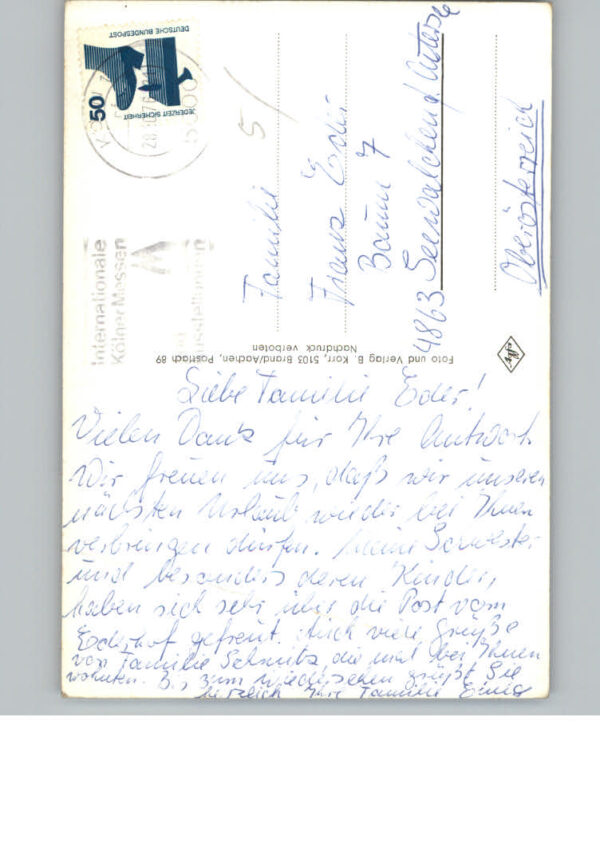 Liebe Familie Eder!
Vielen Dank für Ihre Antwort.
Wir freuen uns, daß wir unseren
nächsten Urlaub wieder bei Ihnen
verbringen dürfen. Meine Schwester
und besonders deren Kinder,
haben sich sehr über die Post vom
Ederhof gefreut. Auch viele Grüße
von Familie Schmitz, die mal bei Ihnen
wohnten. Bis zum Wiedersehen grüßt Sie
herzlich Ihre Familie
Familie
Franz Eder
Baum 7
4863 Seewalchen a. Attersee
Oberösterreich
5/
Foto und Verlag B. Korr, 5103 Brand/Aachen, Postfach 89
Nachdruck verboten
Agfa
DEUTSCHE BUNDESPOST
50
JEDERZEIT SICHERHEIT
Internationale
Kölner Messen